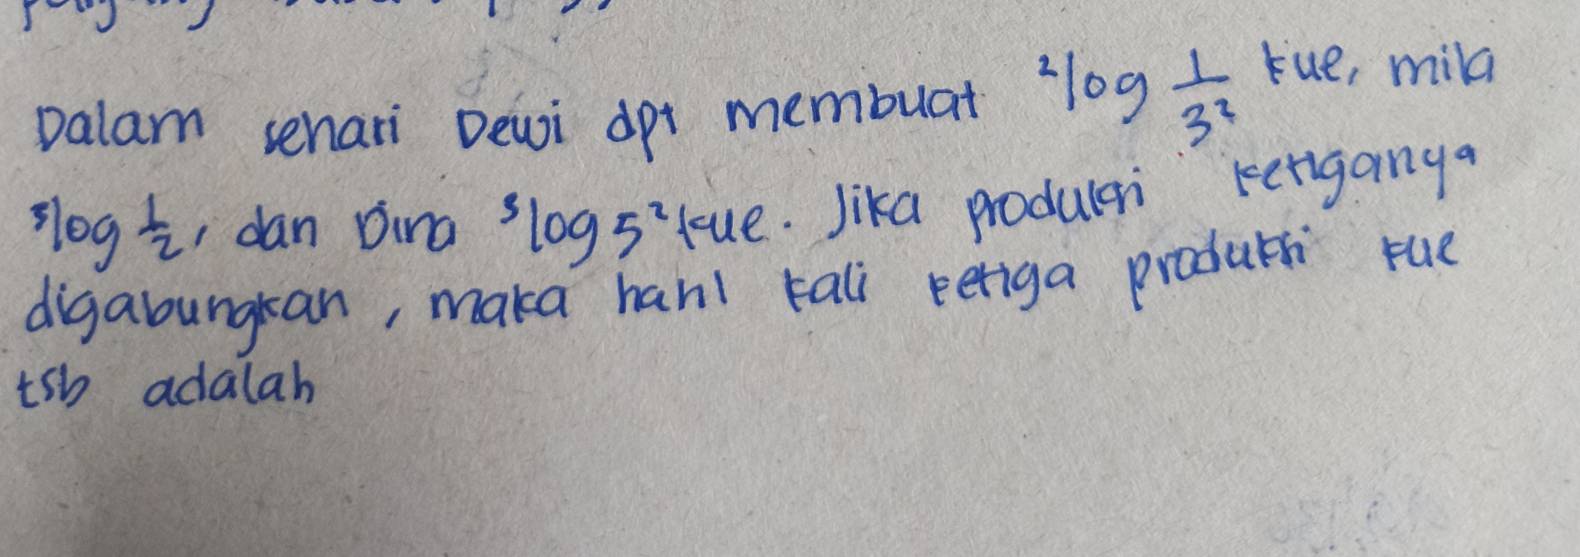 Dalam sehari Dewi dpt membuat ²log 1/3² kue, mila
⁵log 1/2, dan Dina ³log 5² kue. Jika produksi ketiganya
digabungkan, maka hasil kali ketiga produksi kue
tsb adalah